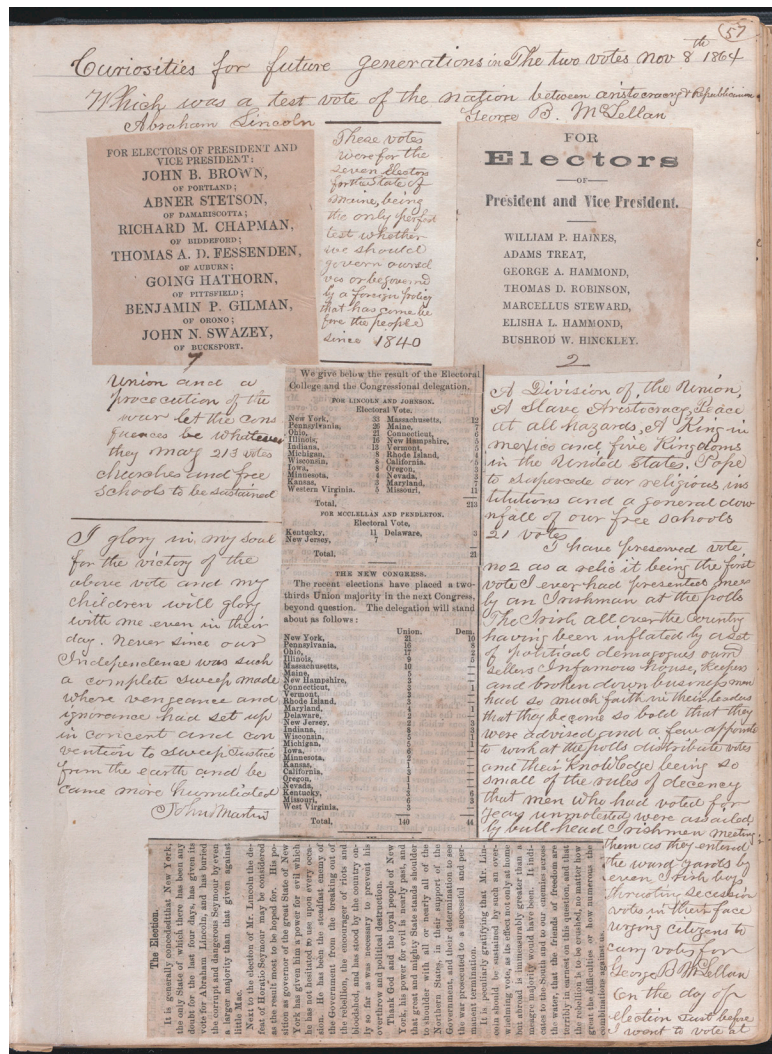 57
Curiosities for future generations in The two votes nov 8th 1864
Which was a test vote of the nation between aristocracy & Republicanism
Abraham Lincoln
George B. McLellan
FOR ELECTORS OF PRESIDENT AND
VICE PRESIDENT:
JOHN B. BROWN,
OF PORTLAND;
ABNER STETSON,
OF DAMARISCOTTA;
RICHARD M. CHAPMAN,
OF BIDDEFORD;
THOMAS A. D. FESSENDEN,
OF AUBURN;
GOING HATHORN,
OF PITTSFIELD;
BENJAMIN P. GILMAN,
OF ORONO;
JOHN N. SWAZEY,
OF BUCKSPORT.
These votes
were for the
seven Electors
for the State of
Maine, being
the only perfect
test whether
we should
govern oursel
ves or be governed
by a foreign policy
that has come be
fore the people
since 1840
FOR
Electors
OF
President and Vice President.
WILLIAM P. HAINES,
ADAMS TREAT,
GEORGE A. HAMMOND,
THOMAS D. ROBINSON,
MARCELLUS STEWARD,
ELISHA L. HAMMOND,
BUSHROD W. HINCKLEY.
2
Union and a
prosecution of the
war let the cons
quences be whatever
they may 213 votes
churches and free
schools to be sustained
I glory in my soul
for the victory of the
above vote and my
children will glory
with me even in their
day. Never since our
Independence was such
a complete sweep made
where vengeance and
ignorance had set up
in concent and con
vention to sweep Justice
from the earth and be
came more humiliated
John Martin
We give below the result of the Electoral
College and the Congressional delegation.
FOR LINCOLN AND JOHNSON.
Electoral Vote.
New York, 33 Massachusetts, 12
Pennsylvania, 26 Maine, 7
Ohio, 21 Connecticut, 6
Illinois, 16 New Hampshire, 5
Indiana, 13 Vermont, 5
Michigan, 8 Rhode Island, 4
Wisconsin, 8 California, 5
Iowa, 8 Oregon, 3
Minnesota, 4 Nevada,
Kansas, 3 Maryland,
Western Virginia. 5 Missouri, 11
Total, 213
FOR MCCLELLAN AND PENDLETON.
Electoral Vote,
Kentucky, 11 Delaware, 3
New Jersey, 7
Total, 21
THE NEW CONGRESS.
The recent elections have placed a two-
thirds Union majority in the next Congress,
beyond question. The delegation will stand
about as follows:
Union. Dem.
New York, 21 10
Pennsylvania, 16 8
Ohio, 17 2
Illinois, 9
Massachusetts, 10
Maine, 5
New Hampshire, 3
Connecticut, 3
Vermont, 3
Rhode Island,
Maryland,
Delaware,
New Jersey,
Indiana, 8
Wisconsin,
Michigan,
Iowa, 6
Minnesota, 2
Kansas, 1
California, 3
Oregon, 1
Nevada, 1
Kentucky,
Missouri,
West Virginia, 3
Total, 140 44
A Division of the Union,
A Slave Aristocracy, Peace
at all hazards, A King in
mexico and five Kingdoms
in the United States, Pope
to supercede our religious ins
titutions and a general dow
nfall of our free schools
21 votes
I have preserved vote
no 2 as a relic it being the first
vote I ever had presented me
by an Irishman at the polls
The Irish all over the Country
having been inflated by a set
of political demagogues rum
sellers Infamous house keepers
and broken down business men
had so much faith in their leaders
that they become so bold that they
were advised and a few appointed
to work at the polls distribute votes
and their Knowledge being so
small of the rules of decency
that men who had voted for
years unmolested were assailed
by bull head Irishmen meeting
them as they entered
the ward yards by
even Irish boys
thrusting secession
votes in their face
urging citizens to
carry votes for
George B McLellan
On the day of
election Just before
I went to vote at
The Election.
It is generally conceded that New York,
the only State of which there has been any
doubt for the last four days, has given its
vote for Abraham Lincoln, and has buried
the corrupt and dangerous Seymour by even
a larger majority than that given against
little Mac.
Next to the election of Mr. Lincoln the de-
feat of Horatio Seymour may be considered
as the result most to be hoped for. His po-
sition as governor of the great State of New
York has given him a power for evil which
he has not hesitated to use upon every occa-
sion. He has been the steadfast enemy of
the Government from the breaking out of
the rebellion, the encourager of riots and
bloodshed, and has stood by the country on-
ly so far as was necessary to prevent his
overthrow and political destruction.
Thank God and the loyal people of New
York, his power for evil is nearly past, and
that great and mighty State stands shoulder
to shoulder with all or nearly all of the
Northern States, in their support of the
Government, and their determination to see
the war prosecuted to a successful and per-
manent termination.
It is peculiarly gratifying that Mr. Lin-
coln should be sustained by such an over-
whelming vote, as its effect not only at home
but abroad is immeasurably greater than a
meagre majority would have been. It indi-
cates to the South and to our enemies across
the water, that the friends of freedom are
terribly in earnest on this question, and that
the rebellion is to be crushed, no matter how
great the difficulties or how numerous the
combinations against us.